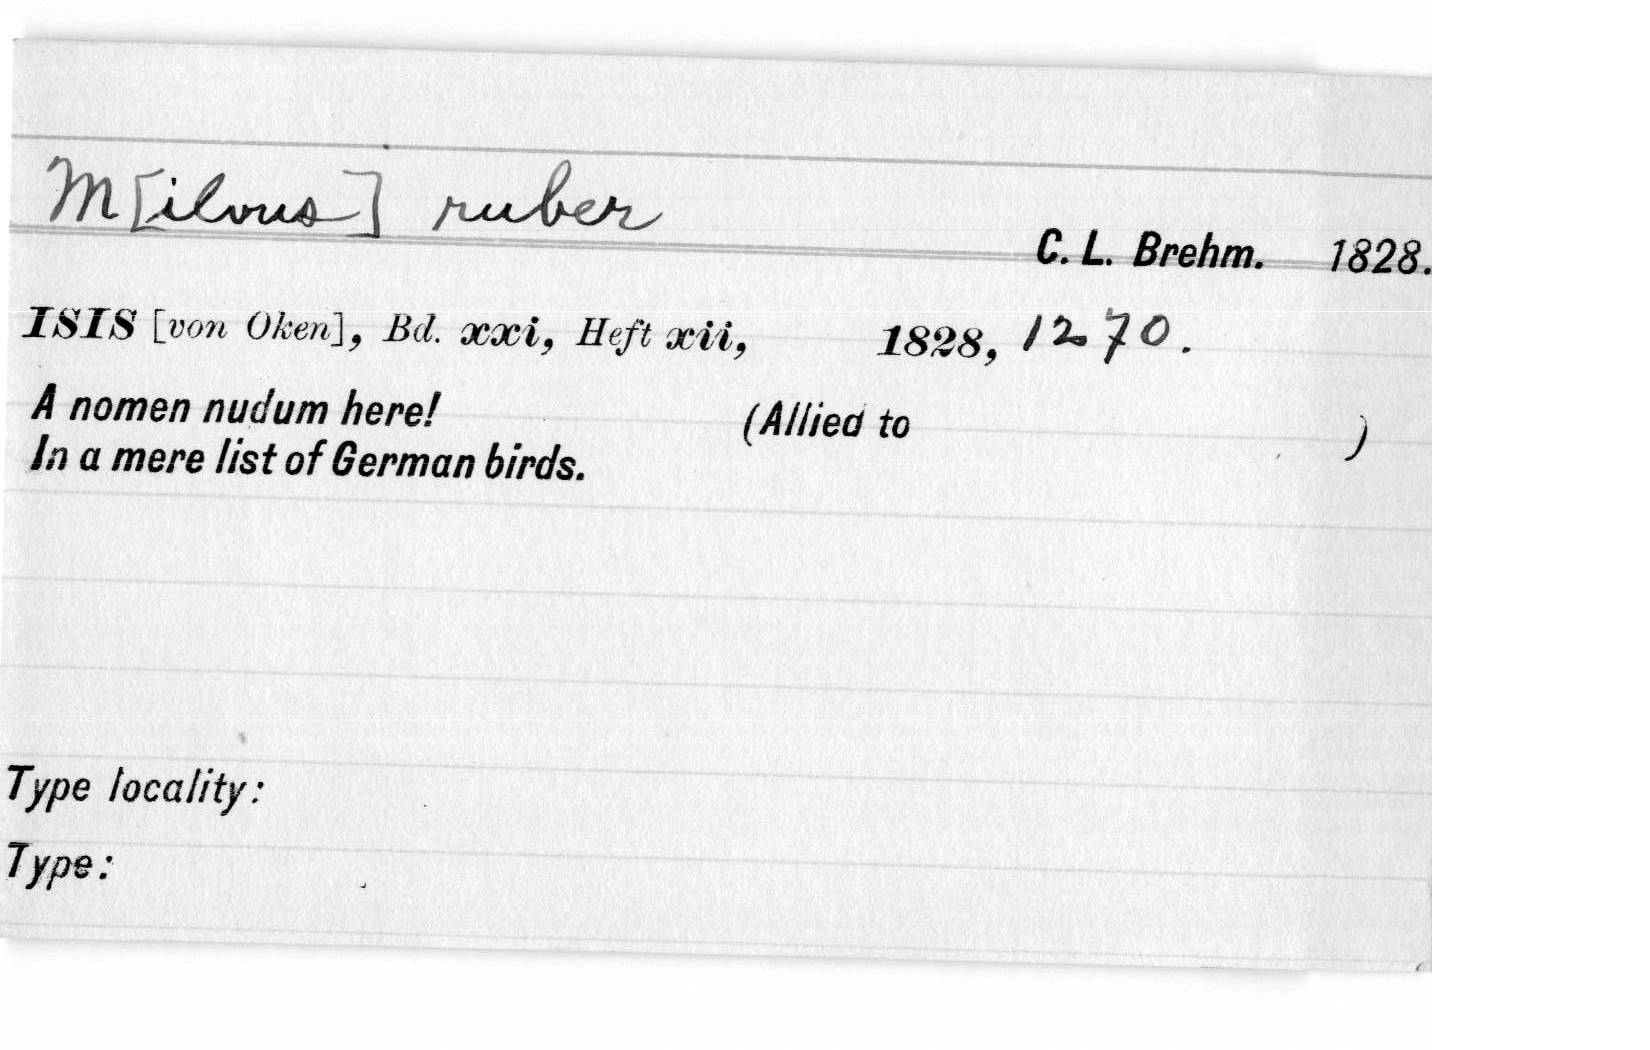 M[ilvus] ruber
C. L. Brehm. 1828.
ISIS [von Oken], Bd. xxi, Heft xii, 1828, 1270.
A nomen nudum here! (Allied to )
In a mere list of German birds.
Type locality:
Type: